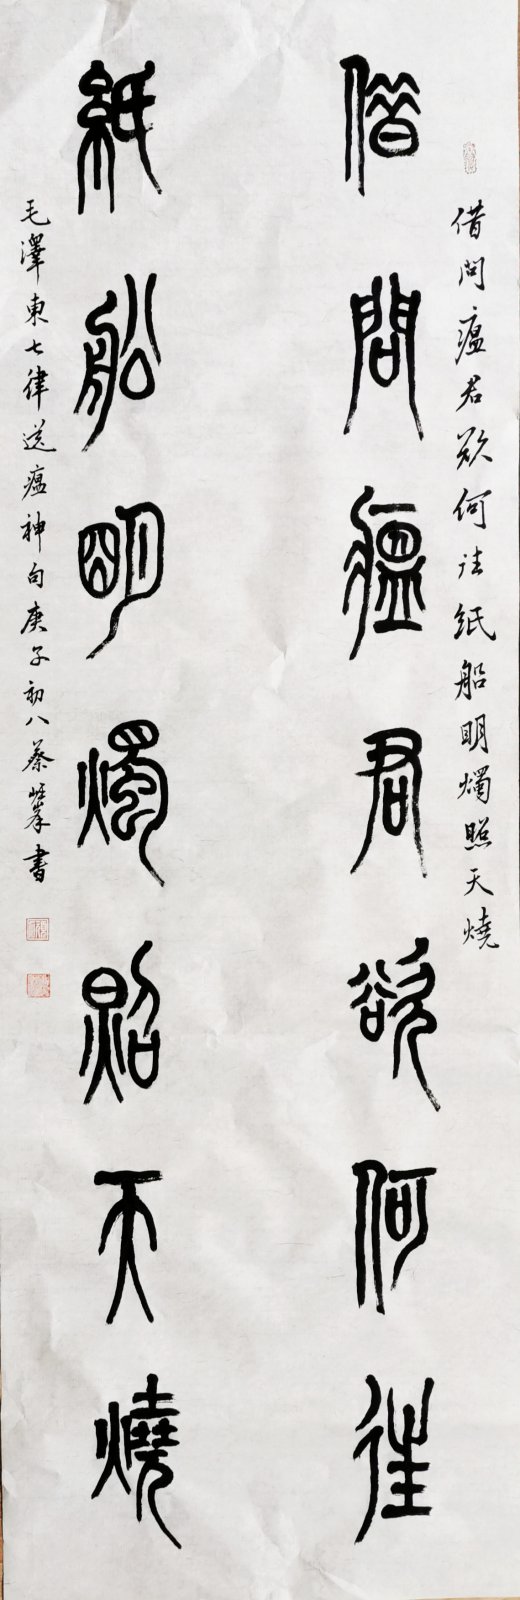 借問瘟君欲何往紙船明燭照天燒
借問瘟君欲何往
紙船明燭照天燒
毛澤東七律送瘟神句庚子初八蔡書